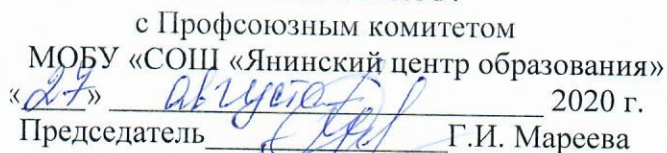 с Профсоюзным комитетом
МОБУ «СОШ «Янинский центр образования»
«27» августа 2020 г.
Председатель Г.И. Мареева